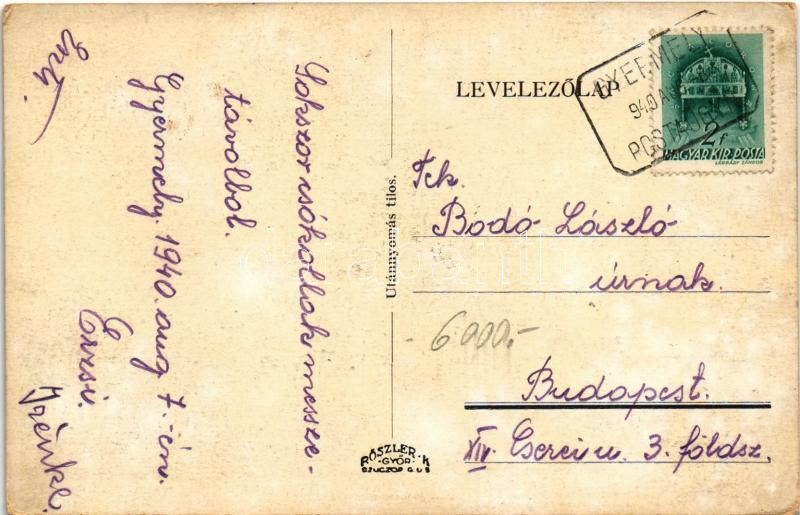 Sokszor csókollak messze-
távolbol.
Gyermely. 1940. aug 7.-én.
Erzsi.
Utánnyomás tilos.
RŐSZLER K
GYŐR
LEVELEZŐLAP
GYERMELY
940 AU
POSTAÜGY
2f
MAGYAR KIR. POSTA
LÉGRÁDY SÁNDOR
Tek.
Bodó László
úrnak.
6000.-
Budapest.
XIV. Cserei u. 3. földsz.